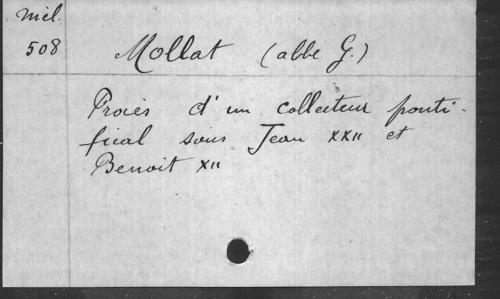 Mél.
508
Mollat (abbé G.)
Procès d'un collecteur ponti-
fical sous Jean XXII et
Benoit XII